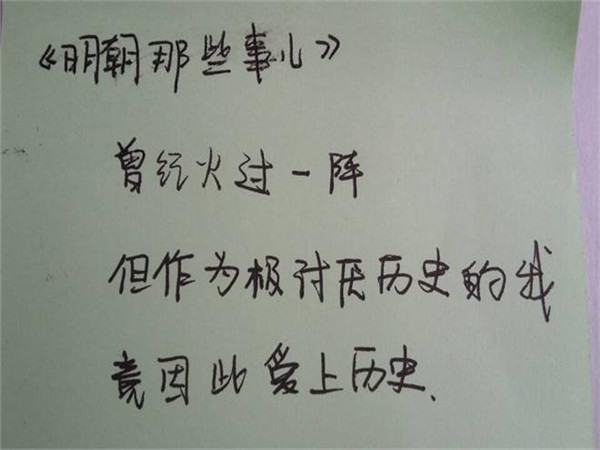 《明朝那些事儿》
曾经火过一阵
但作为极讨厌历史的我
竟因此爱上历史、